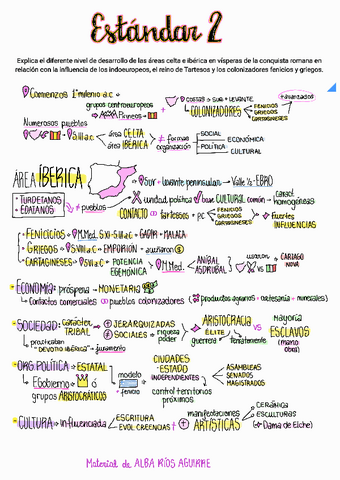 Estándar 2
Explica el diferente nivel de desarrollo de las áreas celta e ibérica en vísperas de la conquista romana en
relación con la influencia de los indoeuropeos, el reino de Tartesos y los colonizadores fenicios y griegos.
Comienzos 1er milenio a.c
grupos centroeuropeos
Pirineos
COSTAS SUR + LEVANTE
COLONIZADORES
FENICIOS
GRIEGOS
CARTAGINESES
+avanzados
Numerosos pueblos
S.III a.c
área CELTA
área IBERICA
≠ formas
organización
SOCIAL
POLÍTICA
ECONÓMICA
CULTURAL
ÁREA IBERICA
Sur + levante peninsular → Valle 1/2 EBRO
• TURDETANOS
• EDATANOS
≠ pueblos
unidad política
base CULTURAL común
Caract.
homogéneas
CONTACTO
tartessos + PC
FENICIOS
GRIEGOS
CARTAGINESES
Fuertes
INFLUENCIAS
- FENICIOS → M.Med. S.XI-S.VIII a.C → GADIR + MALACA
- GRIEGOS → S.VIII a.C → EMPORION → acuñaron
- CARTAGINESES → S.VI a.C + POTENCIA
EGEMÓNICA
M.Med.
ANÍBAL
ASDRUBAL
VS
CARTAGO
NOVA
- ECONOMÍA: próspera → MONETARIA
Contactos comerciales
pueblos colonizadores
(productos agrarios + artesanía + minerales)
- SOCIEDAD:
carácter
TRIBAL
+ JERARQUIZADAS
≠ SOCIALES
riqueza
poder
ARISTOCRACIA
ÉLITE
guerrera
terrateniente
VS
Mayoría
ESCLAVOS
(mano
obra)
practicaban
"DEVOTIO IBÉRICA" → juramento
- ORG. POLÍTICA → ESTATAL
Egobierno
ó
grupos ARISTOCRÁTICOS
modelo
fenicio
CIUDADES
-ESTADO
INDEPENDIENTES
ASAMBLEAS
SENADOS
MAGISTRADOS
control territorios
próximos
- CULTURA → Influenciada
ESCRITURA
EVOL. CREENCIAS
+
manifestaciones
ARTÍSTICAS
CERÁMICA
ESCULTURAS
(→ Dama de Elche)
Material de ALBA RÍOS AGUIRRE